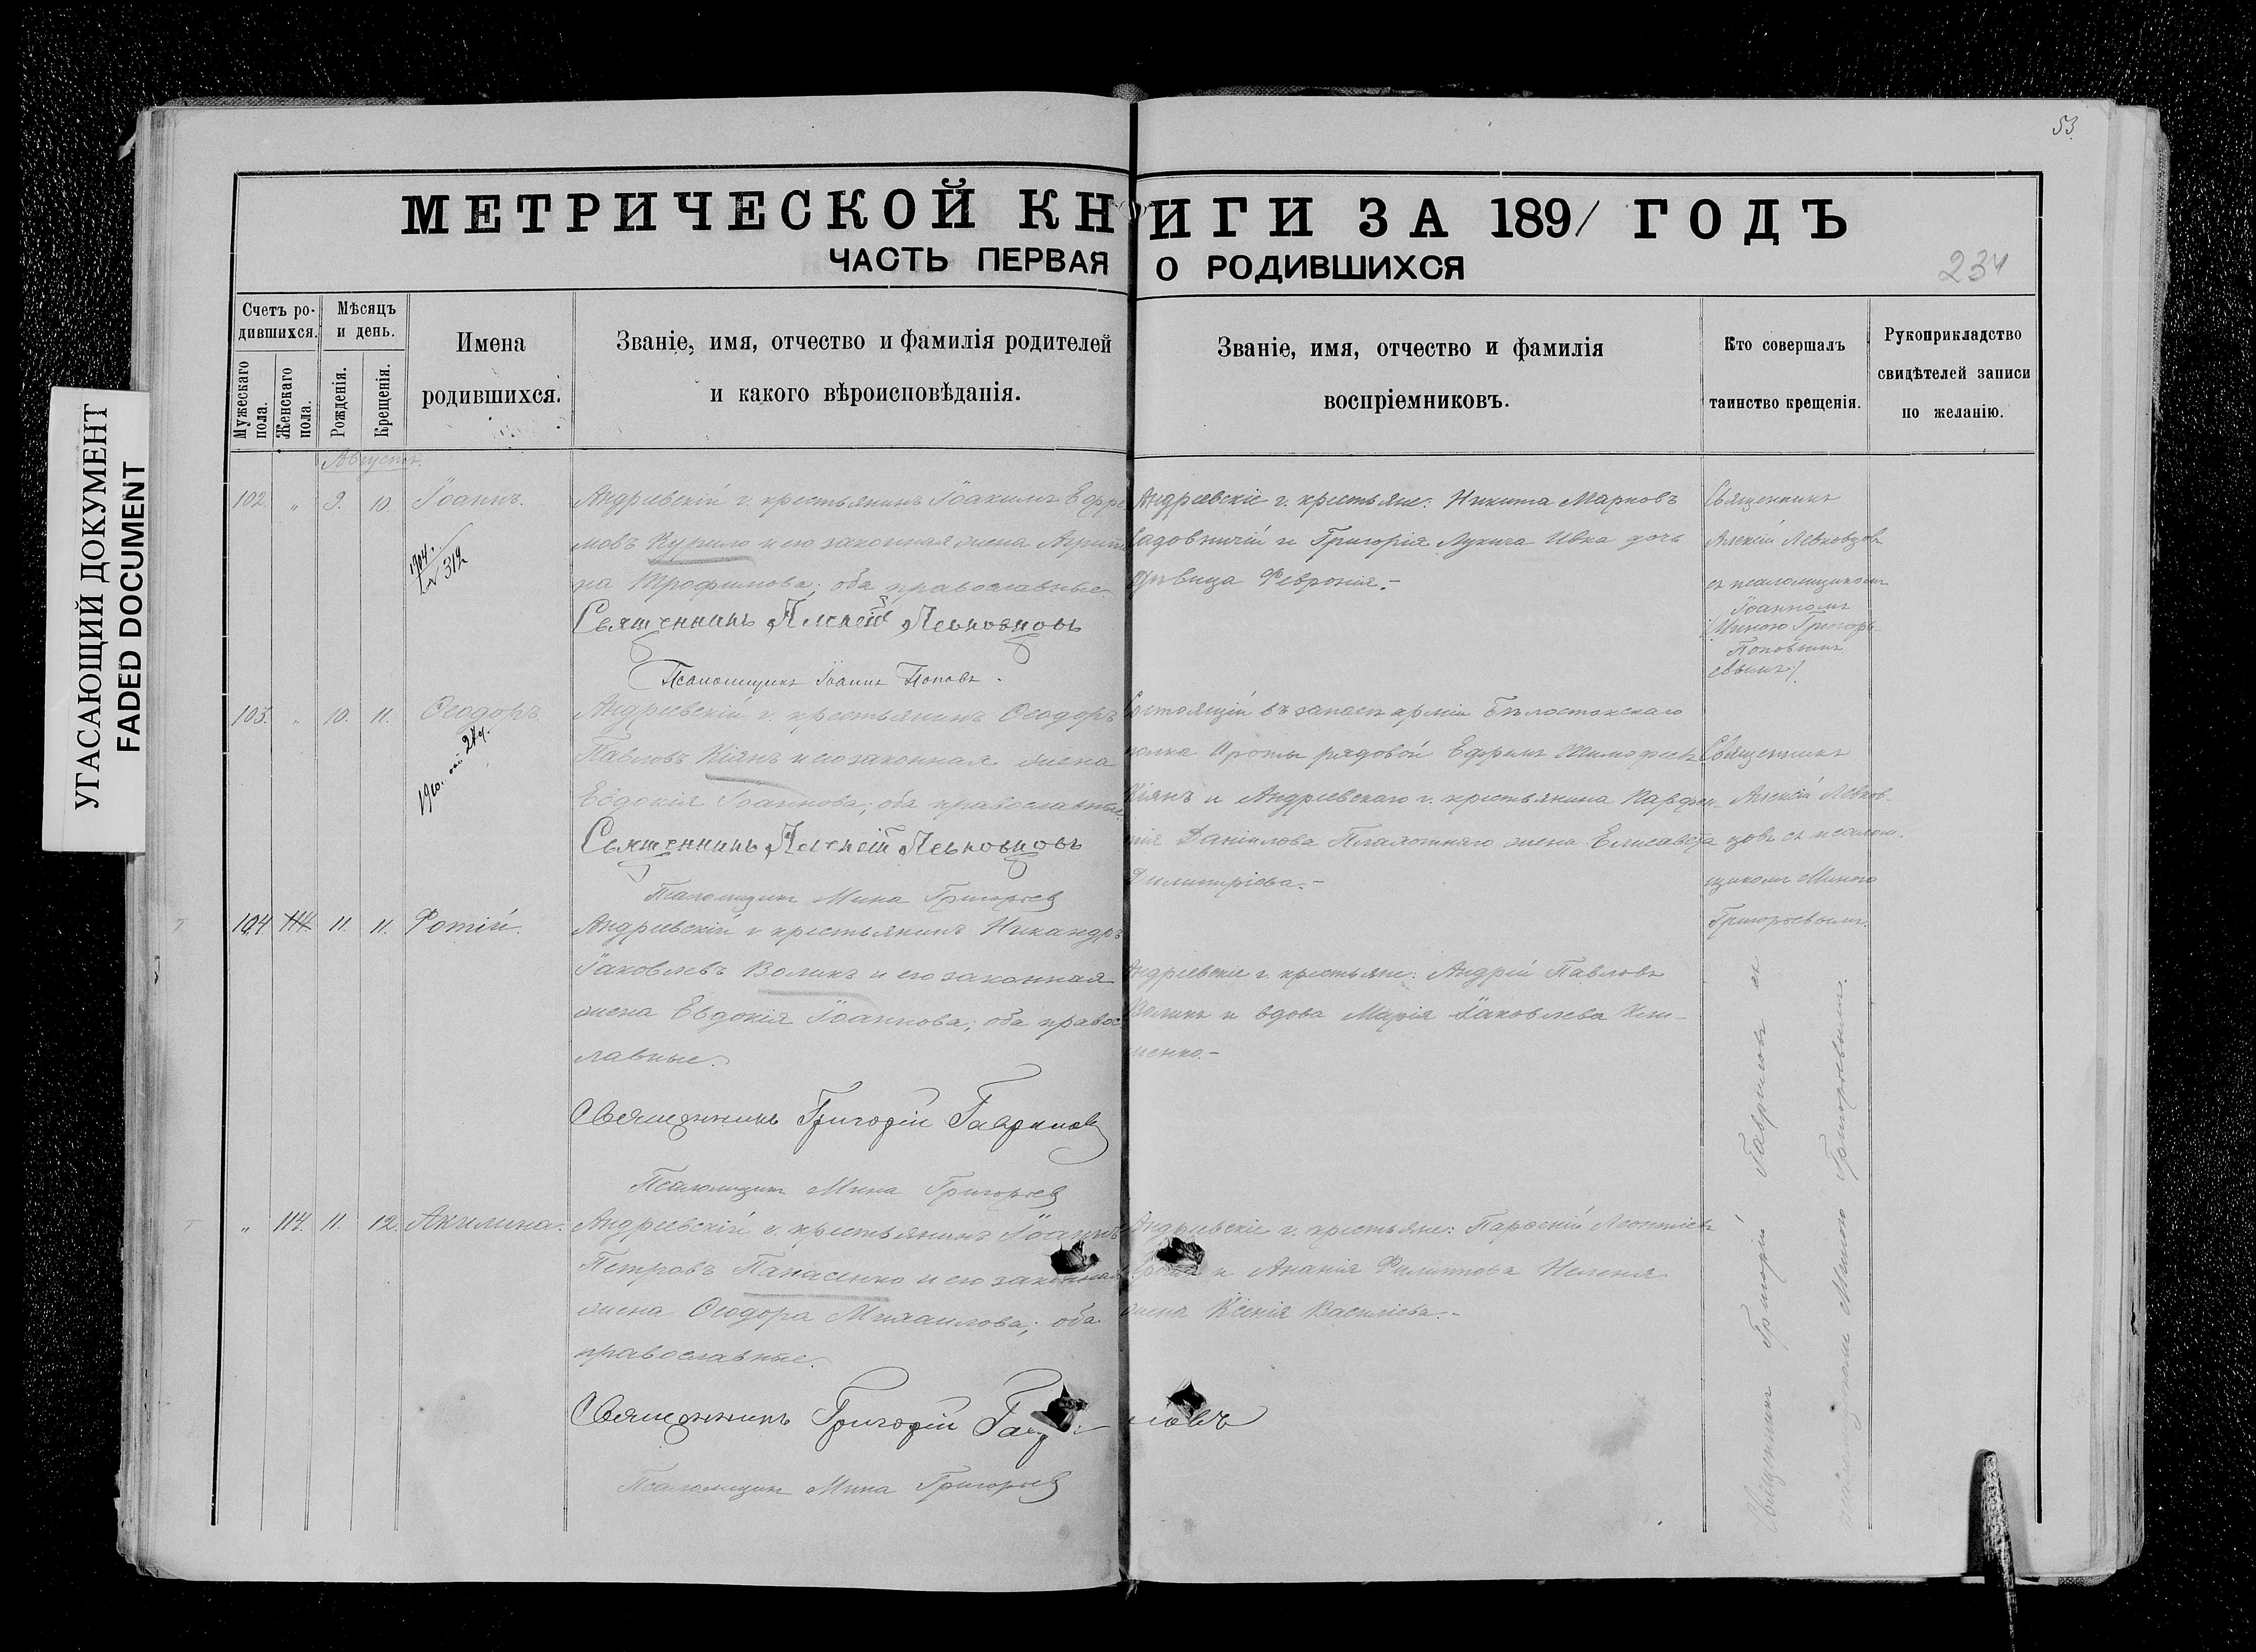 53.
УГАСАЮЩИЙ ДОКУМЕНТ
FADED DOCUMENT
МЕТРИЧЕСКОЙ КНИГИ ЗА 1891 ГОДЪ
ЧАСТЬ ПЕРВАЯ О РОДИВШИХСЯ
234
Счетъ родившихся.
Мужескаго пола.
Женскаго пола.
Мѣсяцъ и день.
Рожденія.
Крещенія.
Имена
родившихся.
Званіе, имя, отчество и фамилія родителей
и какого вѣроисповѣданія.
Званіе, имя, отчество и фамилія
воспріемниковъ.
Кто совершалъ
таинство крещенія.
Рукоприкладство
свидѣтелей записи
по желанію.
Августъ.
102. " 9. 10. Іоаннъ.
1904. № 312
Андреевскій г. крестьянинъ Іоакимъ Ефре
мовъ Курило и его законная жена Агрип
на Трофимова; оба православные.
Священникъ Алексій Левковцовъ
Псаломщикъ Іоаннъ Поповъ.
Андреевскіе г. крестьяне: Никита Марковъ
Садовничій и Григорія Лукича Ивка дочь
дѣвица Февронія.-
Священникъ
Алексій Левковцовъ
съ псаломщикомъ
Іоанномъ
Миною Григорь-
Поповымъ
евымъ/.
103. " 10. 11. Ѳеодоръ.
1910. 279.
Андреевскій г. крестьянинъ Ѳеодоръ
Павловъ Кіянъ и его законная жена
Евдокія Іоаннова; оба православные.
Священникъ Алексій Левковцовъ
Псаломщикъ Мина Григорьев
Состоящій въ запасѣ арміи Бѣлостокскаго
полка роты рядовой Ефремъ Тимофеевъ
Кіянъ и Андреевскаго г. крестьянина Парфе-
нія Даніилова Плахотняго жена Елисавета
Димитріева.-
Священникъ
Алексій Левков-
цовъ съ псалом-
щикомъ Миною
Григорьевымъ.
104. 114. 11. 11. Фотій.
Андреевскій г. крестьянинъ Никандръ
Іаковлевъ Воликъ и его законная
жена Евдокія Іоаннова; оба правос
лавные.
Священникъ Григорій Гаврилов
Псаломщикъ Мина Григорьев
Андреевскіе г. крестьяне: Андрей Павловъ
Воликъ и вдова Марія Іаковлева Кли-
менко.-
" 114. 11. 12. Акилина.
Андреевскій г. крестьянинъ Іоаннъ
Петровъ Панасенко и его законная
жена Ѳеодора Михаилова; оба
православные.
Священникъ Григорій Гаври ловъ
Псаломщикъ Мина Григорьев
Андреевскіе г. крестьяне: Парѳеній Леонтіевъ
и Ананія Филиппова
жена Ксенія Василіева.-
Священникъ Григорій Гавриловъ съ
псаломщикомъ Миною Григорьевымъ.